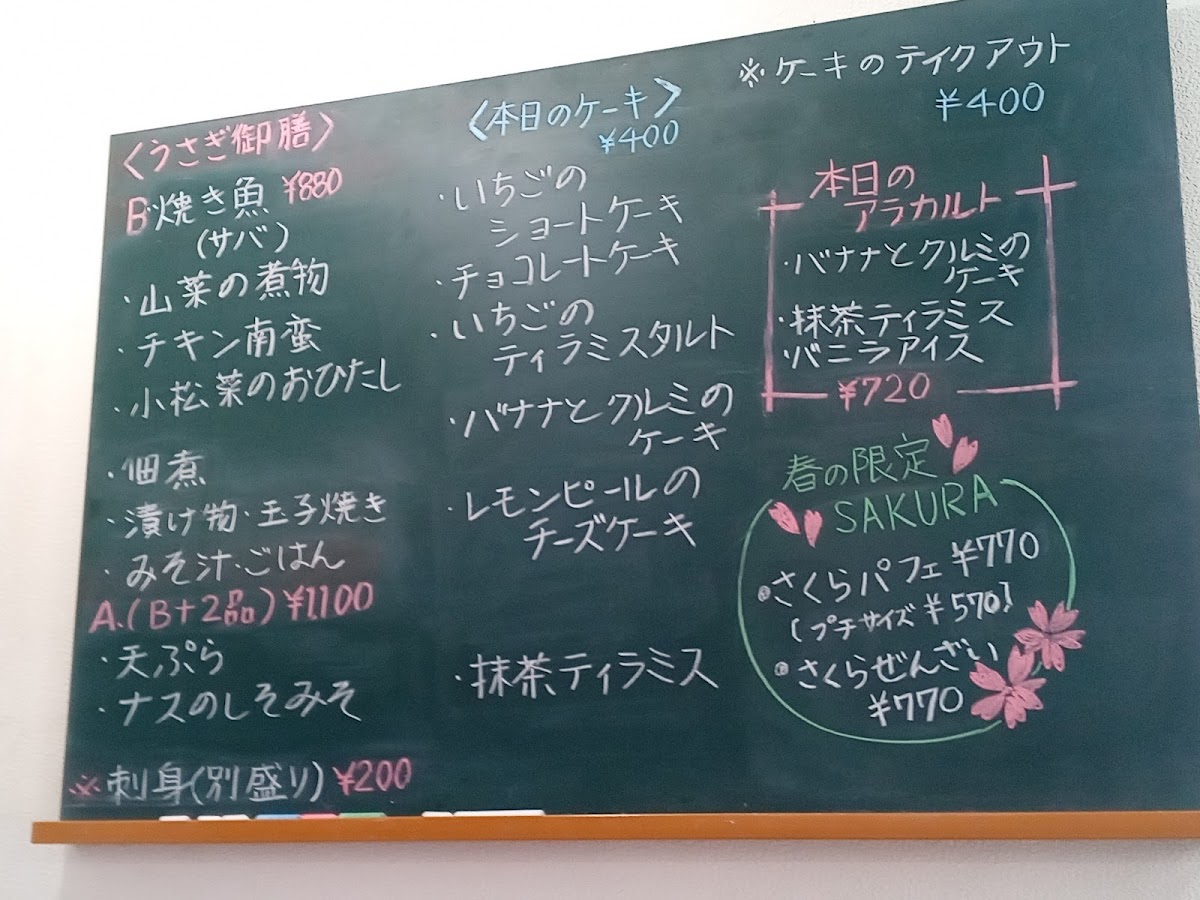 〈うさぎ御膳〉
B・焼き魚 ¥880
(サバ)
・山菜の煮物
・チキン南蛮
・小松菜のおひたし
・佃煮
・漬け物・玉子焼き
・みそ汁・ごはん
A.(B+2品)¥1100
・天ぷら
・ナスのしそみそ
※刺身(別盛り)¥200
〈本日のケーキ〉
¥400
・いちごの
ショートケーキ
・チョコレートケーキ
・いちごの
ティラミスタルト
・バナナとクルミの
ケーキ
・レモンピールの
チーズケーキ
・抹茶ティラミス
※ケーキのテイクアウト
¥400
本日の
アラカルト
・バナナとクルミの
ケーキ
・抹茶ティラミス
・バニラアイス
¥720
春の限定
SAKURA
さくらパフェ¥770
(プチサイズ¥570)
さくらぜんざい
¥770